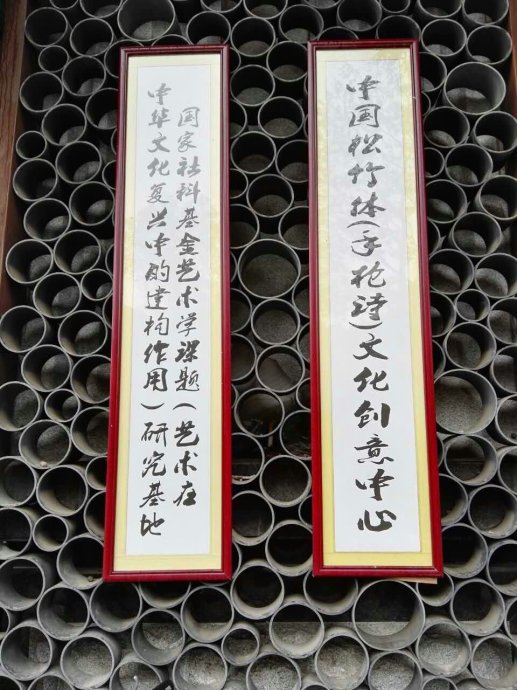 中国松竹体(手枪诗)文化创意中心
国家社科基金艺术学课题(艺术在
中华文化复兴中的建构作用)研究基地